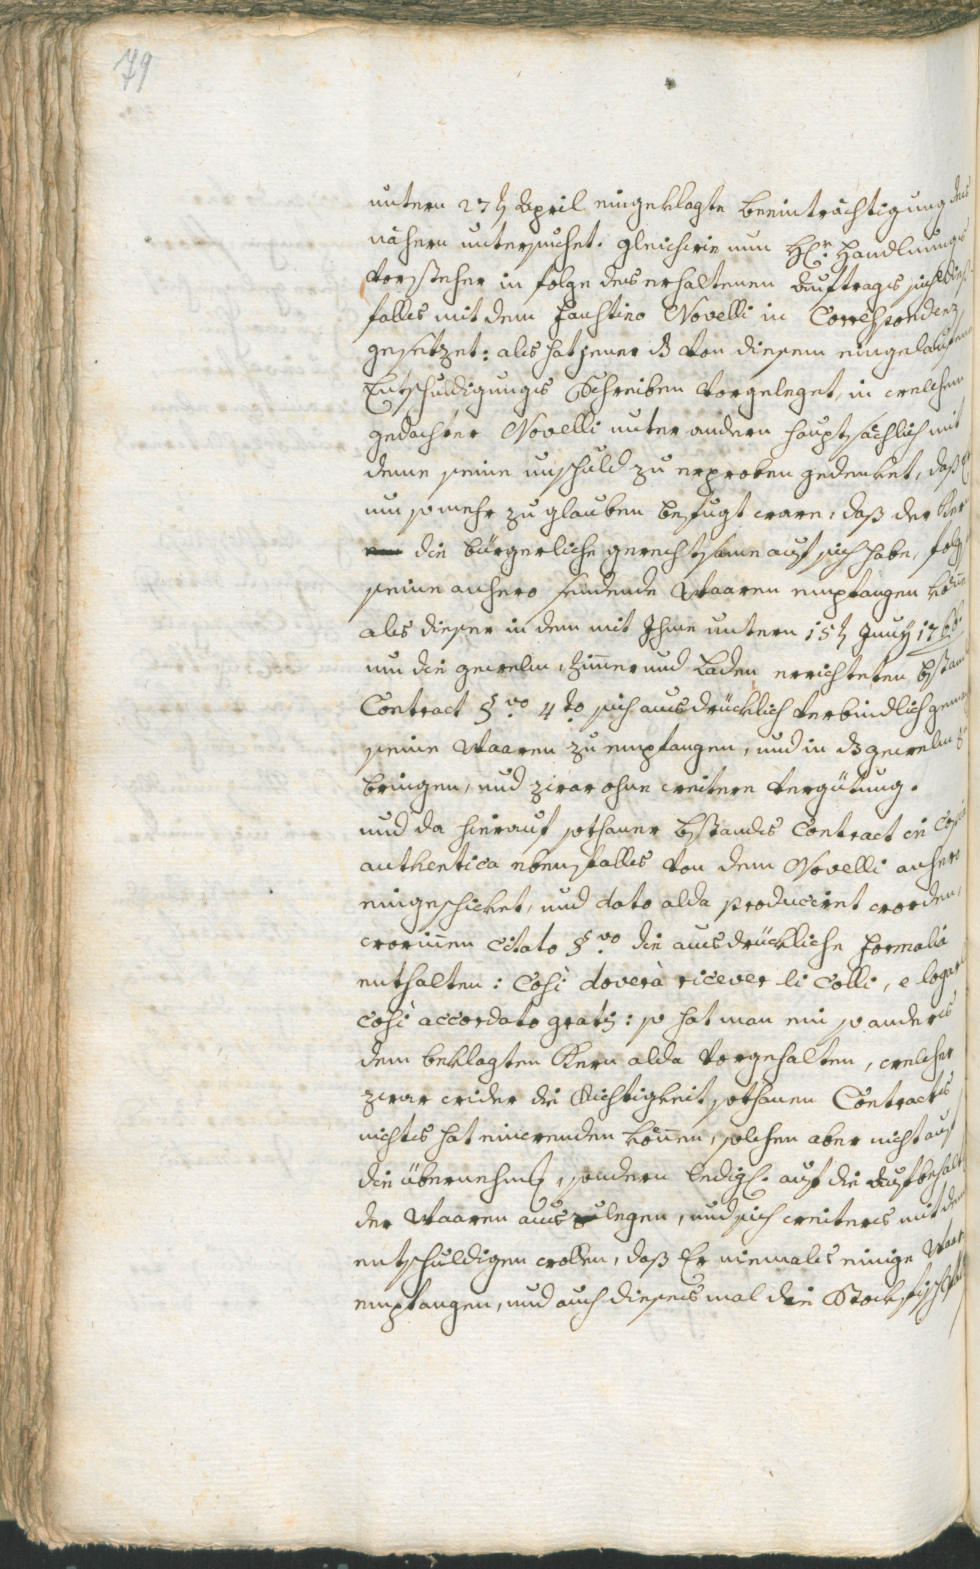 79
untern 27ten April eingeklagte Beeinträchtigung des
nähern untersuchet. gleichwie nun HE.rn Handlungs
Vorsteher in folge des erhaltenen Auftrags sich dies
falls mit dem Faustino Novelli in Correspondenz
gesetzet: als hat jener ds von diesem eingelaufene
Entschuldigungs Schreiben vorgeleget, in welchem
gedachter Novelli unter andern hauptsächlich mit
deme seine unschuld zu erproben gedenket, daß Er
um so mehr zu glauben befugt ware, daß der Kern
die bürgerliche gerechtsame auf sich habe, folgl.
seine anhero sendende Waaren empfangen könne
als dieser in dem mit Ihme untern 15ten Juny
um die gewelm, Zimmer und Laden errichteten Bstand
Contract §vo 4to sich ausdrücklich verbindlich gemacht
seine Waaren zu empfangen, und in ds gewelm zu
bringen, und zwar ohne weitere Vergütung.
und da hierauf sothaner Bstands Contract in Copia
authentica ebenfalls von dem Novelli anhero
eingeschicket, und dato alda produciret worden,
worinnen citato §vo die ausdrückliche Formalia
enthalten: Cosi doverà ricever li Colli, e logarli
cosi accordato gratis: so hat man ein so anders
dem beklagten Kern alda vorgehalten, welcher
zwar wider die Richtigkeit sothanen Contracts
nichts hat einwenden können, solchen aber nicht auf
die übernehm, sondern ledigl. auf die Aufbehalt
der Waaren auszulegen, und sich weiters mit dem
entschuldigen wollen, daß Er niemals einige Waar
empfangen, und auch dieses mal die Stockfisch